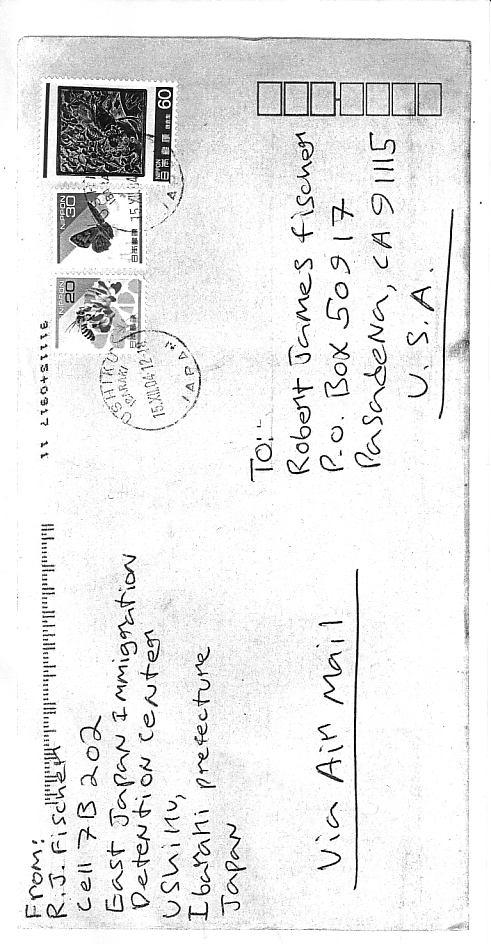 From:
R.J. Fischer
Cell 7B 202
East Japan Immigration
Detention Center
Ushiku,
Ibaraki prefecture
Japan
60
日本郵便
NIPPON
30
日本郵便
NIPPON
20
日本郵便
15.XII.04
JAPAN
USHIKU
IBARAKI
15.XII.04 12-18
JAPAN
91115+0917
TO:-
Robert James Fischer
P.O. Box 50917
Pasadena, CA 91115
U.S.A.
Via Air Mail